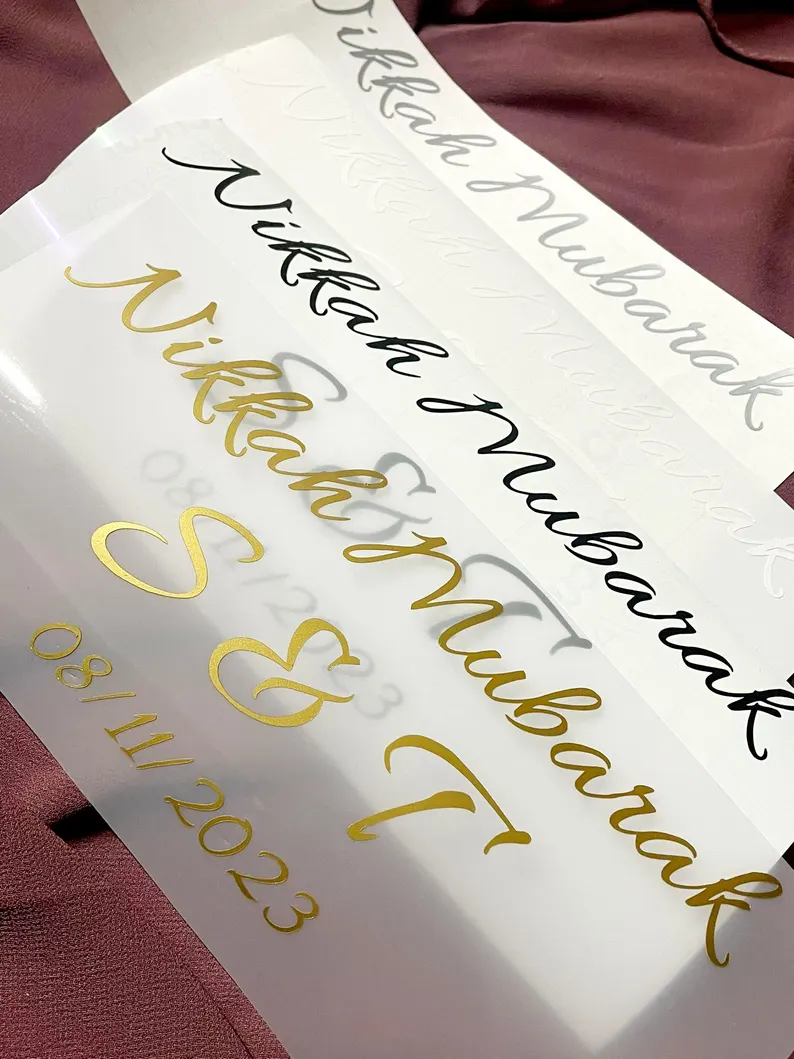 Nikkah Mubarak
Nikkah Mubarak
Nikkah Mubarak
Nikkah Mubarak
S & T
08/11/2023